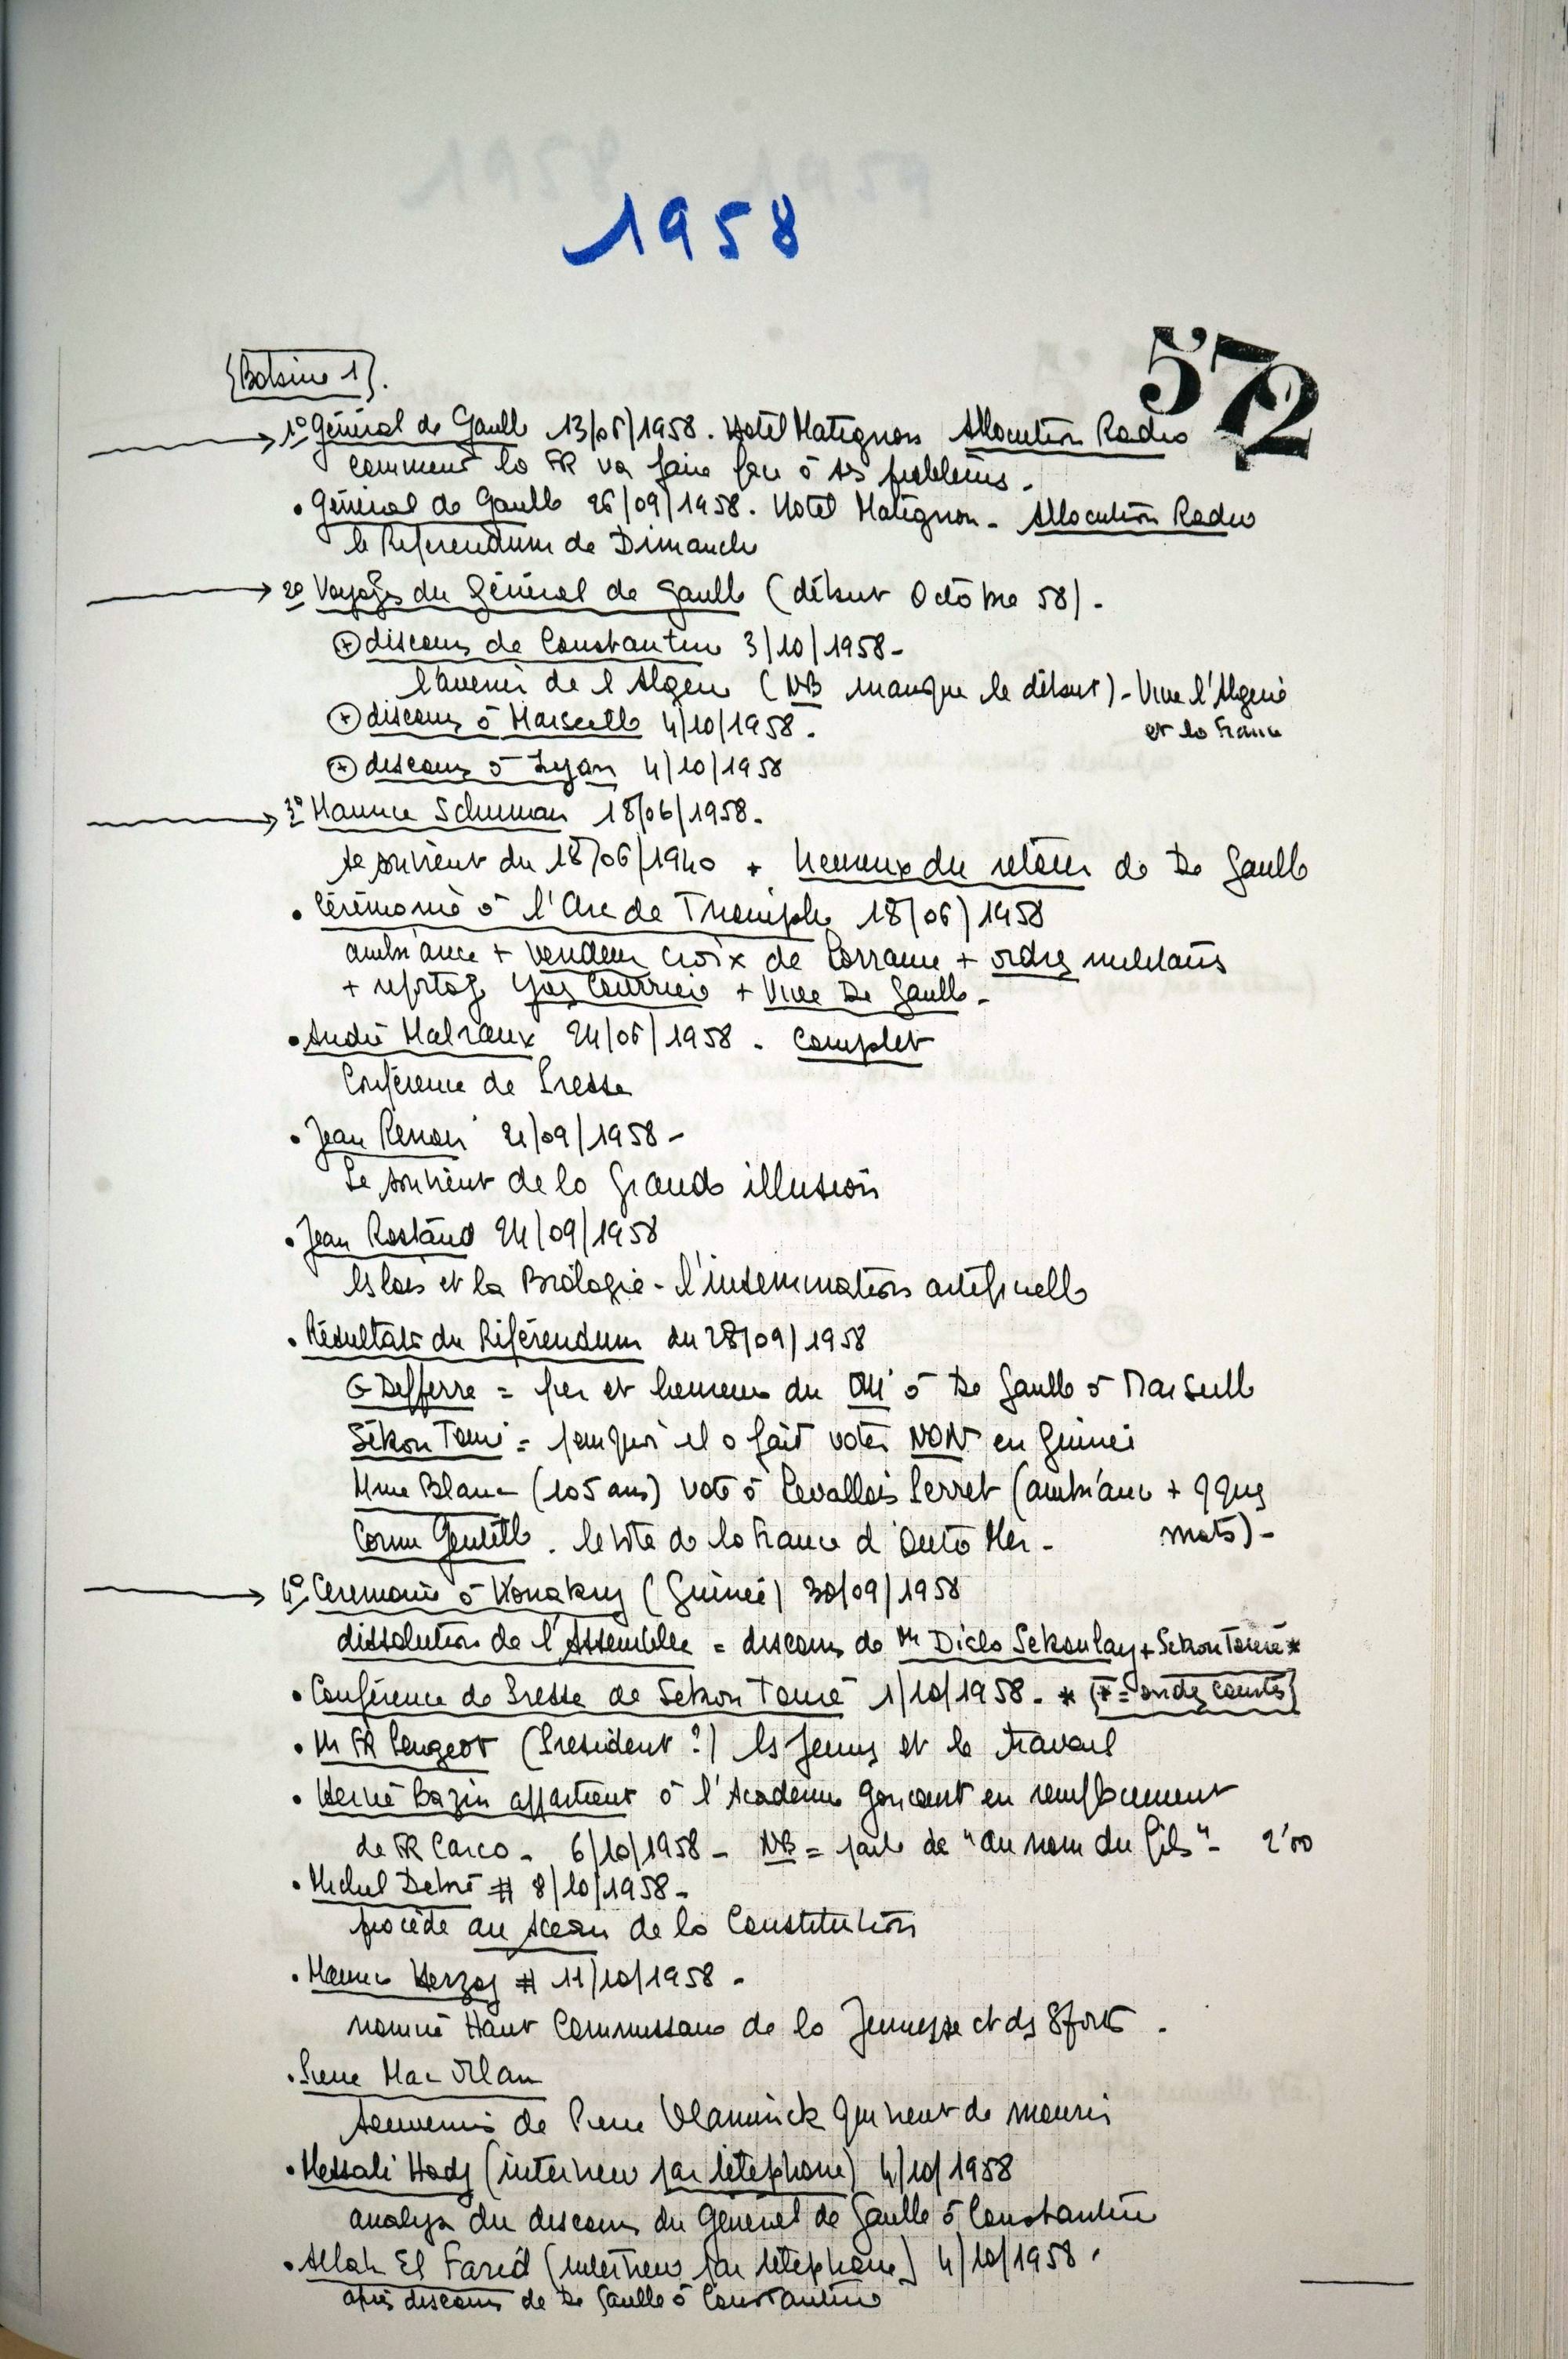 1958
572
{Bobine 1}.
1° Général de Gaulle 13/06/1958. Hotel Matignon Allocution Radio
comment la FR va faire face à ses problèmes.
• Général de Gaulle 26/09/1958. Hotel Matignon - Allocution Radio
le Referendum de Dimanche
2° Voyages du Général de Gaulle (début Octobre 58).
⊕ discours de Constantine 3/10/1958-
l'avenir de l'Algérie (NB manque le début) - Vive l'Algerie
et la France
⊕ discours à Marseille 4/10/1958.
⊕ discours à Lyon 4/10/1958
3° Maurice Schuman 18/06/1958.
se souvient du 18/06/1940 + heureux du retour de De Gaulle
• Cérémonie à l'Arc de Triomphe 18/06/1958
ambiance + vendeur croix de Lorraine + ordres militaires
+ reportage Yves Courrier + Vive De Gaulle -
• André Malraux 24/06/1958 . Complet
Conférence de Presse
• Jean Renoir 21/09/1958 -
Se souvient de la Grande illusion
• Jean Rostand 24/09/1958
les lois et la Biologie - l'insemination artificielle
• Résultats du Référendum du 28/09/1958
G Defferre = fier et heureux du OUI à De Gaulle à Marseille
Sékou Touré = pourquoi il a fait voter NON en Guinée
Mme Blanc (105 ans) vote à Levallois Perret (ambiance + qques
mots) -
Cornu Gentille . le vote de la France d'Outre Mer -
4° Ceremonie à Konakry (Guinée) 30/09/1958
dissolution de l'Assemblée = discours de Mr Diclo Sekoulay + Sekou Touré *
• Conférence de Presse de Sekou Touré 1/10/1958 - * {* = ondes courtes}
• Mr FR Peugeot (President ?) les Jeunes et le Travail
• Hervé Bazin appartient à l'Academie Goncourt en remplacement
de FR Carco - 6/10/1958 - NB = parle de "Au nom du fils" - 2'00
• Michel Debré # 8/10/1958 -
procède au sceau de la Constitution
• Maurice Herzog # 11/10/1958 -
nommé Haut Commissaire de la Jeunesse et des Sports .
• Pierre Mac Orlan
souvenirs de Pierre Vlaminck qui vient de mourir
• Messali Hadj (interview par téléphone) 4/10/1958
analyse du discours du Général de Gaulle à Constantine
• Allah El Farid (interview par téléphone) 4/10/1958 .
après discours de De Gaulle à Constantine